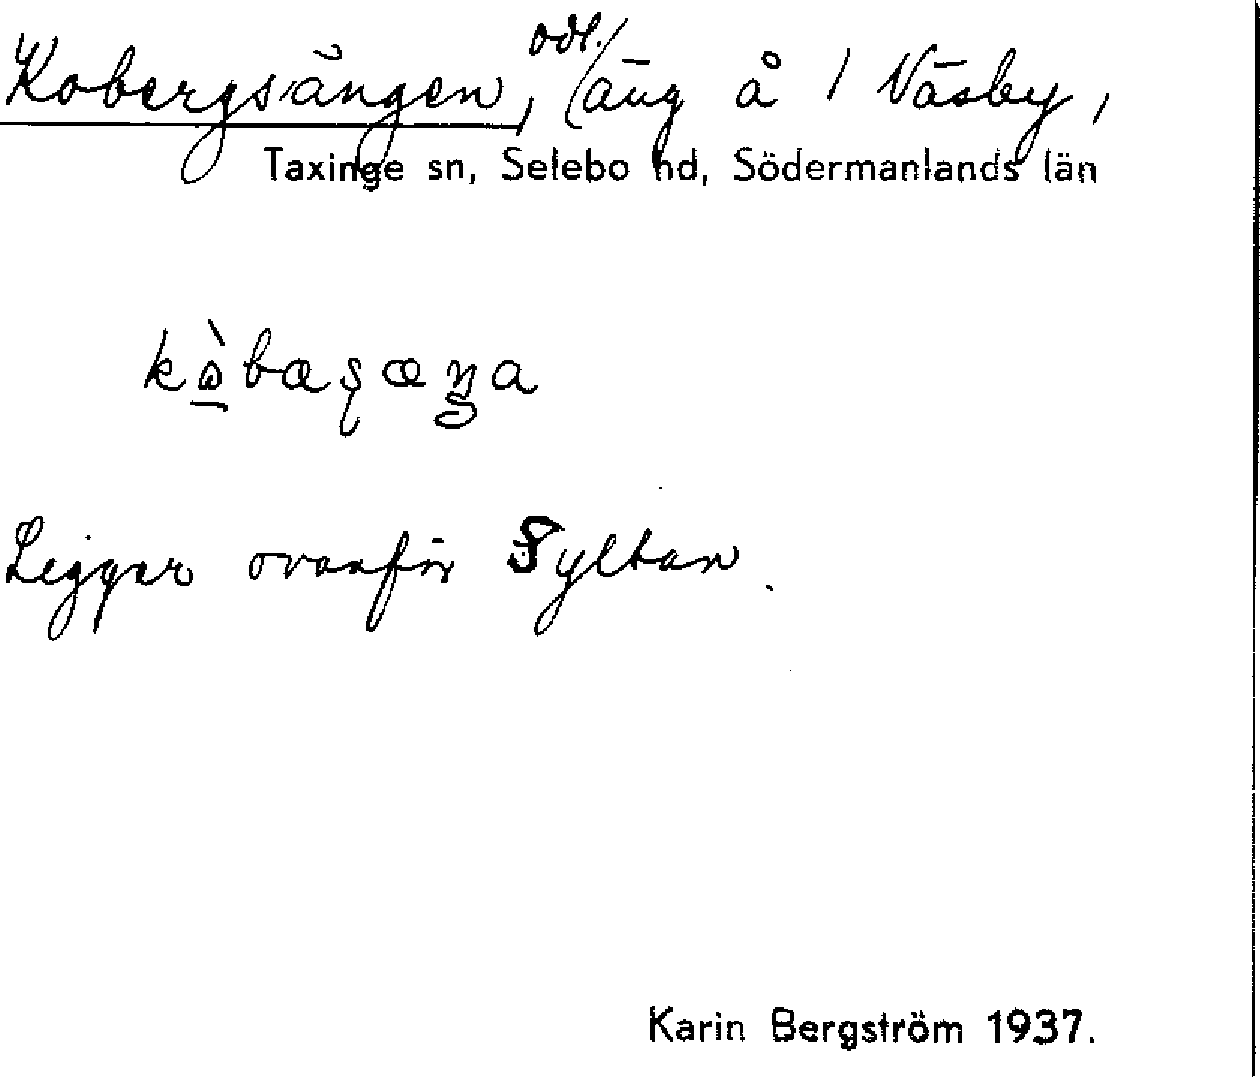 Kobergsängen, odl. äng å 1 Väsby,
Taxinge sn, Selebo hd, Södermanlands län
Ligger ovanför Syltan.
Karin Bergström 1937.